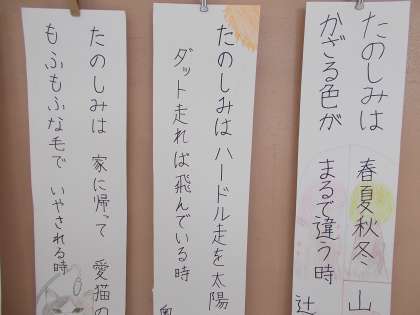 たのしみは
かざる色が
まるで違う時
春夏秋冬
山
辻
たのしみは ハードル走を 太陽
ダット走れば 飛んでいる時
たのしみは 家に帰って 愛猫の
もふもふな毛で いやされる時